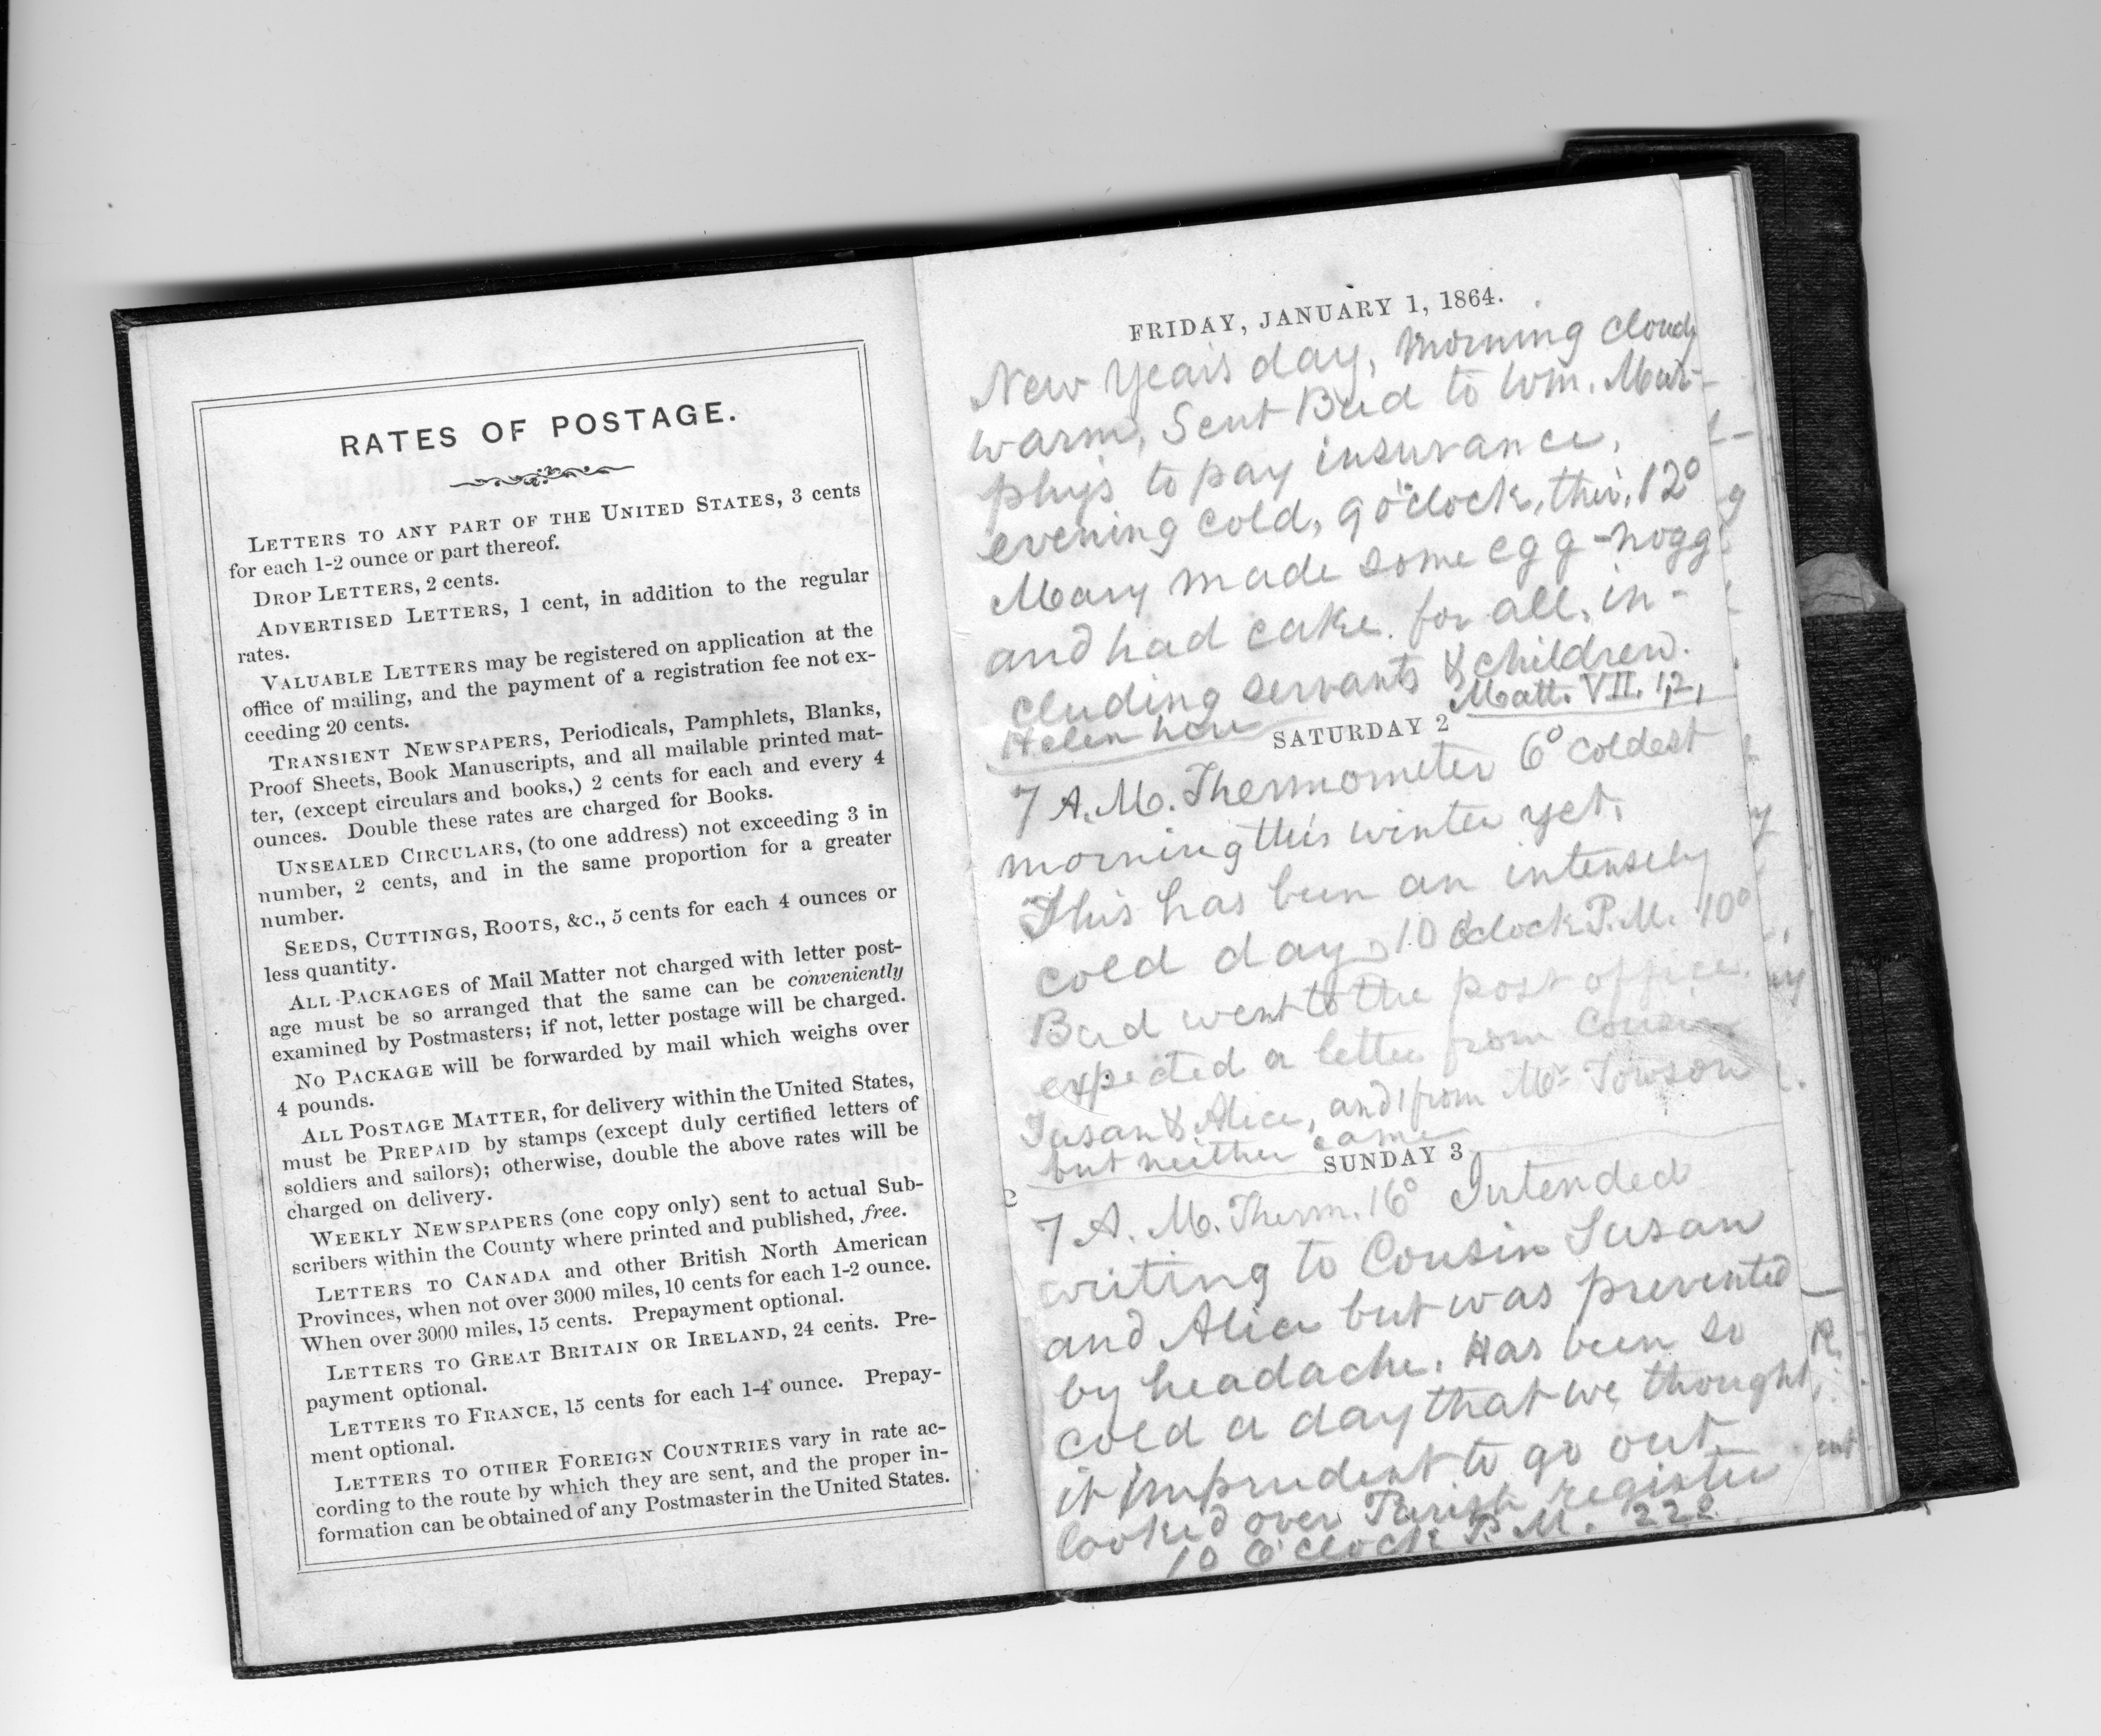 RATES OF POSTAGE.
LETTERS TO ANY PART OF THE UNITED STATES, 3 cents
for each 1-2 ounce or part thereof.
DROP LETTERS, 2 cents.
ADVERTISED LETTERS, 1 cent, in addition to the regular
rates.
VALUABLE LETTERS may be registered on application at the
office of mailing, and the payment of a registration fee not ex-
ceeding 20 cents.
TRANSIENT NEWSPAPERS, Periodicals, Pamphlets, Blanks,
Proof Sheets, Book Manuscripts, and all mailable printed mat-
ter, (except circulars and books,) 2 cents for each and every 4
ounces. Double these rates are charged for Books.
UNSEALED CIRCULARS, (to one address) not exceeding 3 in
number, 2 cents, and in the same proportion for a greater
number.
SEEDS, CUTTINGS, ROOTS, &C., 5 cents for each 4 ounces or
less quantity.
ALL PACKAGES of Mail Matter not charged with letter post-
age must be so arranged that the same can be conveniently
examined by Postmasters; if not, letter postage will be charged.
NO PACKAGE will be forwarded by mail which weighs over
4 pounds.
ALL POSTAGE MATTER, for delivery within the United States,
must be PREPAID by stamps (except duly certified letters of
soldiers and sailors); otherwise, double the above rates will be
charged on delivery.
WEEKLY NEWSPAPERS (one copy only) sent to actual Sub-
scribers within the County where printed and published, free.
LETTERS TO CANADA and other British North American
Provinces, when not over 3000 miles, 10 cents for each 1-2 ounce.
When over 3000 miles, 15 cents. Prepayment optional.
LETTERS TO GREAT BRITAIN OR IRELAND, 24 cents. Pre-
payment optional.
LETTERS TO FRANCE, 15 cents for each 1-4 ounce. Prepay-
ment optional.
LETTERS TO OTHER FOREIGN COUNTRIES vary in rate ac-
cording to the route by which they are sent, and the proper in-
formation can be obtained of any Postmaster in the United States.
FRIDAY, JANUARY 1, 1864.
New Years day, morning cloudy
warm, Sent Bud to Wm. Mur-
phy's to pay insurance,
evening cold, 9 o'clock, ther, 12°
Mary made some egg-nogg
and had cake for all, in-
cluding servants & children.
Helen here
Matt. VII. 1,2,
SATURDAY 2
7 A.M. Thermometer 6° coldest
morning this winter yet.
This has been an intensely
cold day, 10 O'clock P.M. 10°
Bud went to the post office.
expected a letter from Cousin
Susan & Alice, and 1 from Mr Towson
but neither came
SUNDAY 3
7 A. M. Therm. 16° Intended
writing to Cousin Susan
and Alice but was prevented
by headache. Has been so
cold a day that we thought
it imprudent to go out,
looked over Parish register
10 O'clock P.M. 22°.